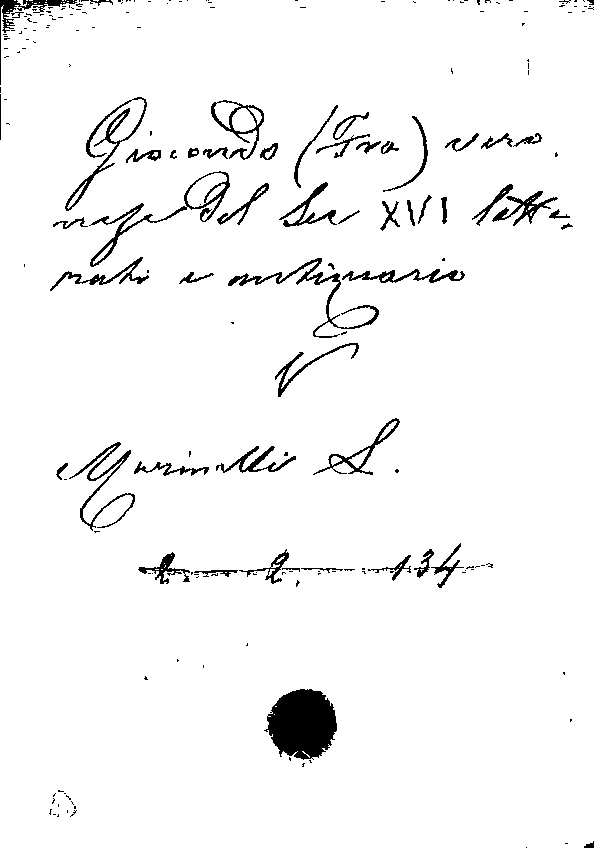 Giocondo (Fra) vero.
nese del Sec XVI lette-
rato e antiquario
V
Marinelli L.
2. 2. 134